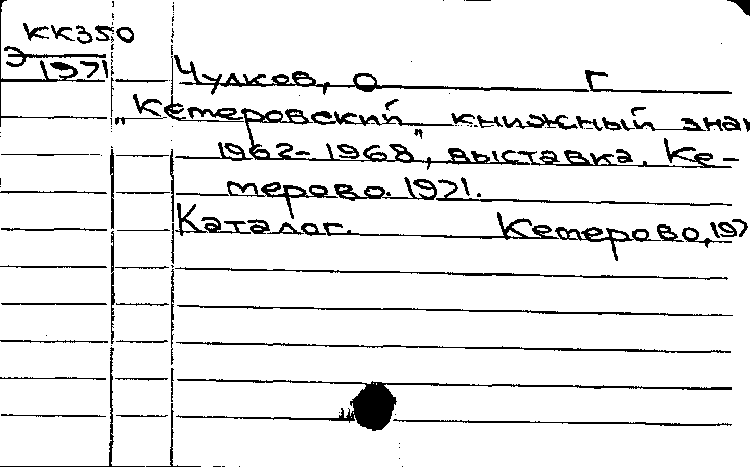 КК350
Э
1971
Чулков, О Г
„Кемеровский" книжный знак
1962-1968, выставка. Ке-
мерово. 1971.
Каталог. Кемерово, 197